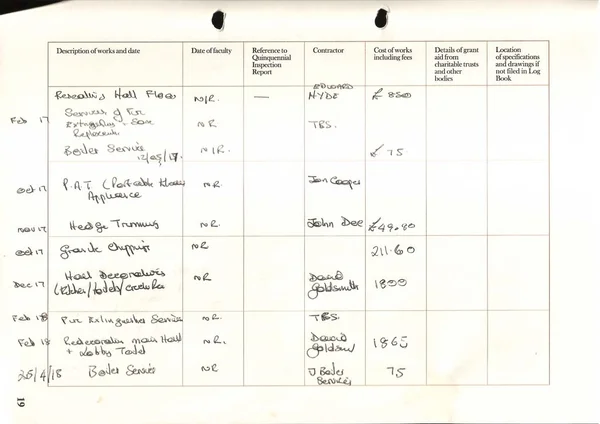 Description of works and date
Date of faculty
Reference to
Quinquennial
Inspection
Report
Contractor
Cost of works
including fees
Details of grant
aid from
charitable trusts
and other
bodies
Location
of specifications
and drawings if
not filed in Log
Book
Hall Floor N/R. — EDWARD
HYDE £ 850
Feb 17 Services of Fire
Extinguishers - Some N R TBS.
Boiler Service N/R. £ 75
12/05/17.
Oct 17 P.A.T (Portable N R. Jon Cooper
Appliance
Nov 17 Hedge Trimming N R. John Dee £49.80
Oct 17 Granite Chippings N R 211.60
Dec 17 Hall Decorations N R David
(Kitchen/toilets/ Goldsmith 1800
Feb 18 Fire Extinguisher Service N R. TBS.
Feb 18 Redecoration main Hall N R. David 1865
+ Lobby Toilet
25/4/18 Boiler Service N R J Boiler 75
Services
19